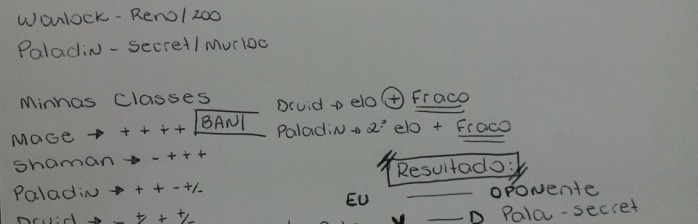 Warlock - Reno/zoo
Paladin - Secret/Murloc
Minhas Classes
Mage → + + + + BAN
Shaman → - + + +
Paladin → + + - +/-
Druid → - + + +/-
Druid → elo + Fraco
Paladin → 2º elo + Fraco
Resultado:
EU — OPONente
V — D Pala - secret